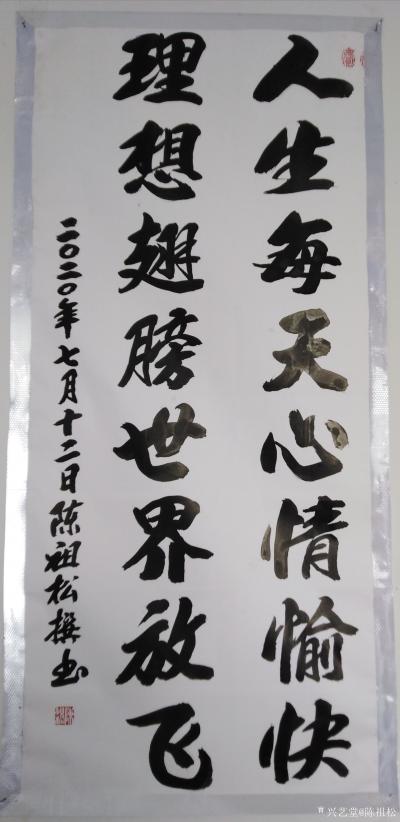 人生每天心情愉快
理想翅膀世界放飞
二〇二〇年七月十二日陈祖松撰书
兴艺堂@陈祖松